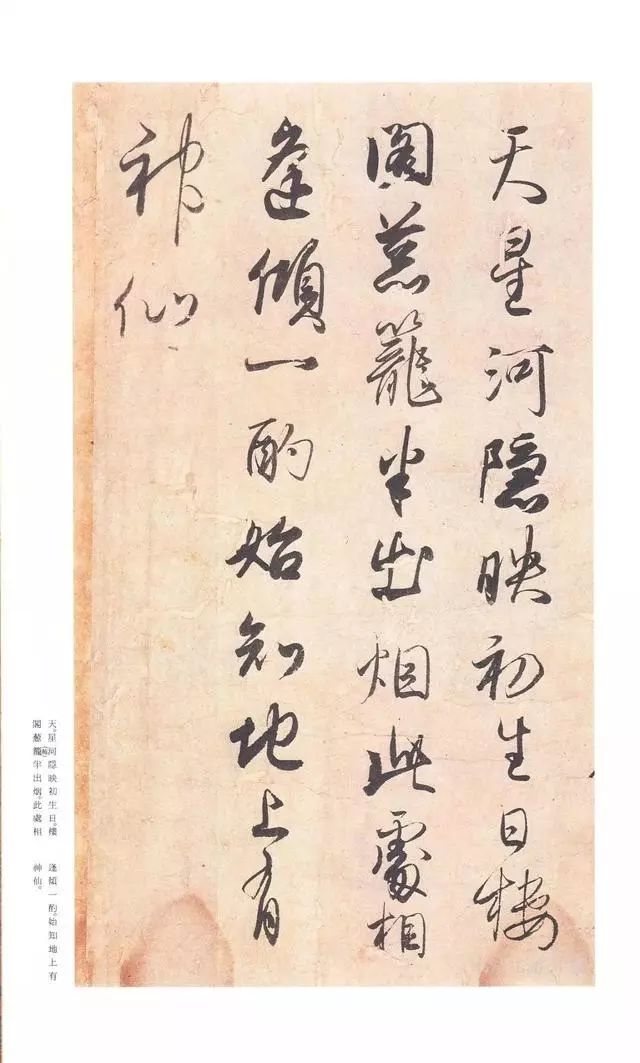 天星河隐映初生日楼
阁葱笼半出烟此處相
逢傾一酌始知地上有
神仙
天。星河隠映初生日。樓
閣葱籠半出烟。此處相
逢傾一酌。始知地上有
神仙。